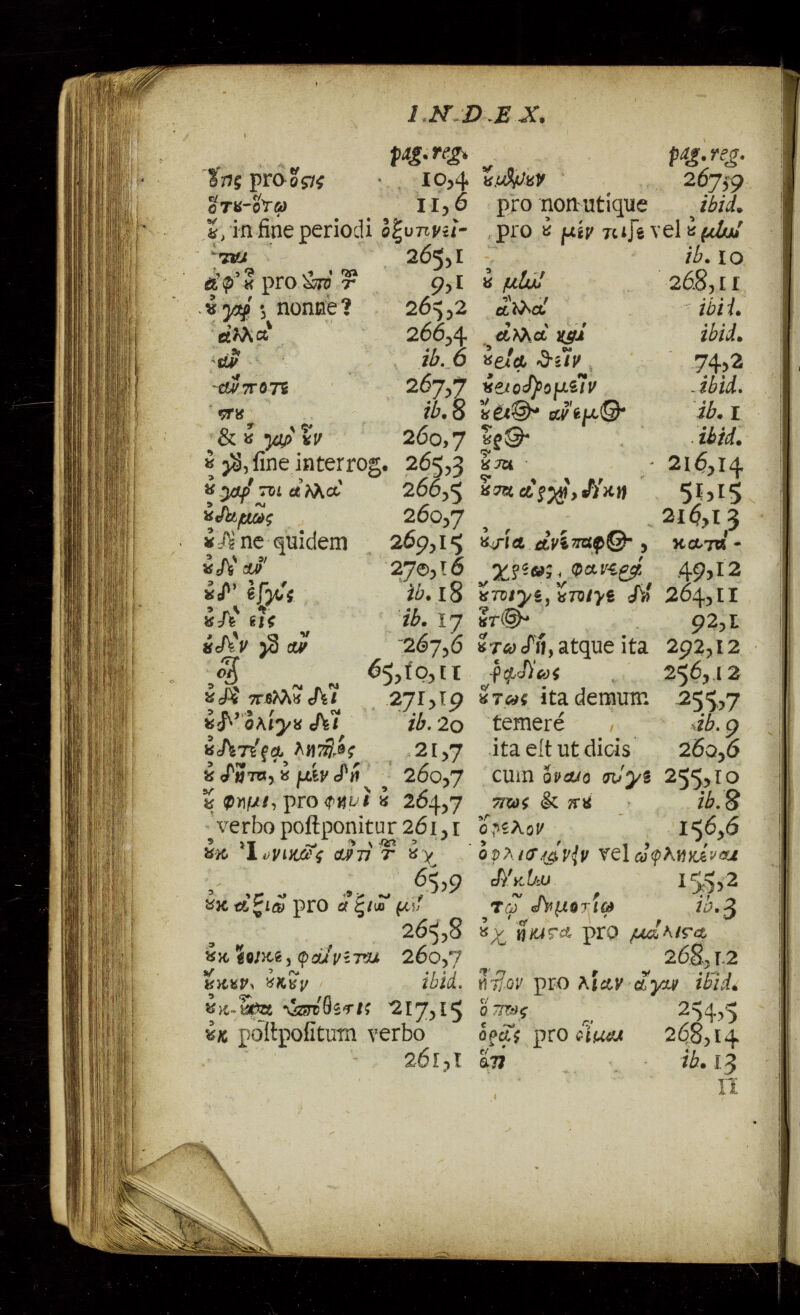 INDEX.
pag. reg.
ὅτις pro ὅστις 10,4
ὅτου-ὅτῳ 11,6
οὐ, in fine periodi ὀξυτονεῖ-
ται 265,1
ἀφ’ οὗ pro ἀπὸ τ 9,1
οὐ γὰρ; nonne? 265,2
ἀλλὰ 266,4
ἂν ib. 6
ἄν ποτε 267,7
που ib. 8
& οὐ γὰρ οὖν 260,7
οὐ γὰρ, fine interrog. 265,3
οὐ γάρ τοι ἀλλὰ 266,5
οὐδαμῶς 260,7
οὐδὲ ne quidem 269,15
οὐδ’ ἂν 270,16
οὐδ’ ib. 18
οὐδὲ εἷς ib. 17
οὐδὲν γὰρ ἂν 267,6
65,10,11
οὐδὲ πολλοῦ δεῖ 271,19
οὐδ’ ὀλίγου δεῖ ib. 20
οὐδετέρα 21,7
οὐ δῆτα, οὐ μὲν δὴ 260,7
οὔ φημι, pro φημὶ οὐ 264,7
verbo postponitur 261,1
οὐκ Ἰωνικῶς ἀντὶ τ οὐχ
65,9
οὐκ ἀξιῶ pro ἀξιῶ μὴ
265,8
οὐκ ἔοικε, φαίνεται 260,7
οὔκουν, οὐκοῦν ibid.
οὐκ- ὑπόθεσις 217,15
οὐκ postpositum verbo
261,1
pag. reg.
οὐμενοῦν 267,9
pro non utique ibid.
pro οὐ μέν τοιγε vel οὐ μὴν
ib. 10
οὐ μὴν 268,11
ἀλλὰ ibid.
ἀλλὰ καὶ ibid.
οὐρίᾳ θεῖν 74,2
οὐριοδρομεῖν ibid.
οὔριος ἄνεμος ib. 1
οὖρος ibid.
οὖσα 216,14
δίκη 51,15
216,13
οὐσία κατὰ-
χρέως, φανερὰ 49,12
οὔτοιγε, οὔτοιγε δὴ 264,11
οὗτος 92,1
οὕτω δὴ, atque ita 292,12
ῥᾳδίως 256,12
οὕτως ita demum 255,7
temeré ib. 9
ita est ut dicis 260,6
cum 255,10
πως & που ib. 8
ὄφελον 156,6
vel ὠφληκέναι
δίκην 155,2
τῷ δημοσίῳ ib. 3
οὐχ ἥκιστα pro μάλιστα
268,12
ἧττον pro λίαν ἄγαν ibid.
ὅπως 254,5
pro 268,14
ὅτι ib. 13
Π